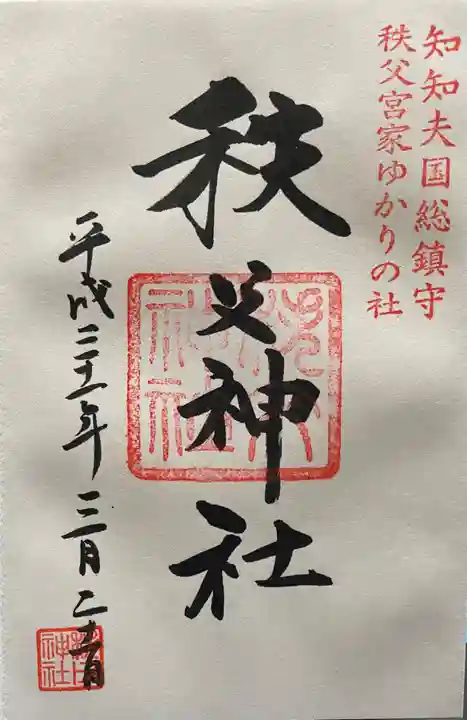 知知夫国総鎮守
秩父宮家ゆかりの社
秩父神社
秩父
神社
平成三十一年三月二十日
神社